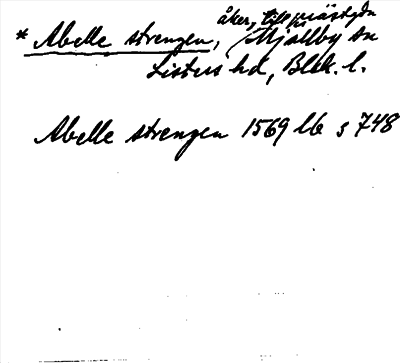 åker, till prästgdn
* Abelle strengen, Mjällby sn
Listers hd, Blek. l.
Abelle strengen 1569 lb s 748